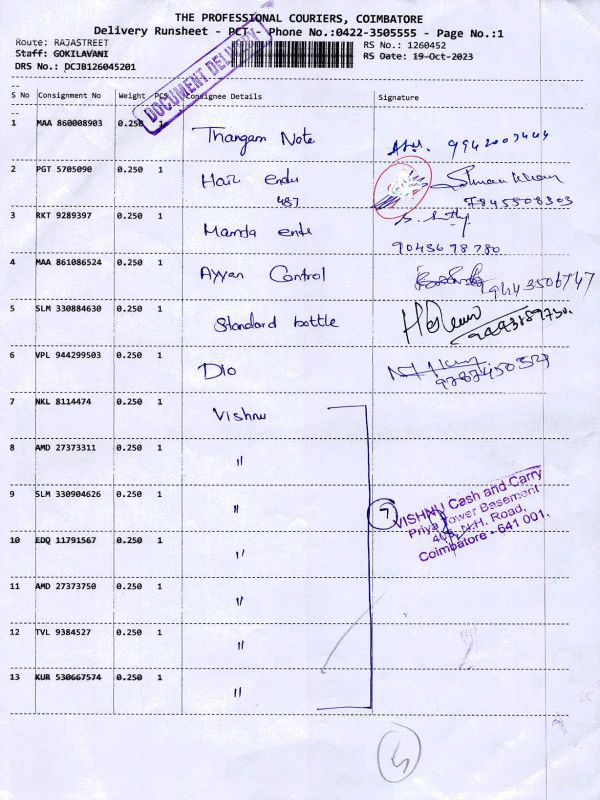 THE PROFESSIONAL COURIERS, COIMBATORE
Delivery Runsheet - PCT - Phone No.:0422-3505555 - Page No.:1
Route: RAJASTREET
RS No.: 1260452
Staff: GOKILAVANI
RS Date: 19-Oct-2023
DRS No.: DCJB126045201
DOCUMENT DELIVERY
S No Consignment No Weight PCS Consignee Details Signature
1 MAA 860008903 0.250 1 Thangam Note
2 PGT 5705090 0.250 1 Hair endu 7845808303
487
3 RKT 9289397 0.250 1 Mamta ente
9043678780
4 MAA 861086524 0.250 1 Ayyan Control 9443506747
5 SLM 330884630 0.250 1 Standard bottle
6 VPL 944299503 0.250 1 Dio
7 NKL 8114474 0.250 1 Vishnu
8 AMD 27373311 0.250 1 "
9 SLM 330904626 0.250 1 "
7
VISHNU Cash and Carry
Priya Tower Basement
405, N.H. Road,
Coimbatore - 641 001.
10 EDQ 11791567 0.250 1 "
11 AMD 27373750 0.250 1 "
12 TVL 9384527 0.250 1 "
13 KUR 530667574 0.250 1 "